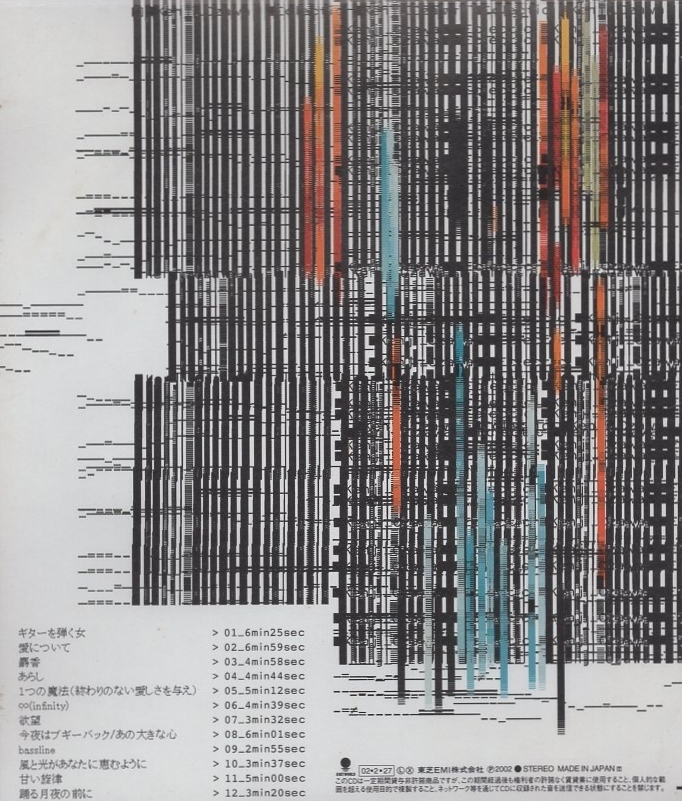 ギターを弾く女 > 01_6min25sec
愛について > 02_6min59sec
麝香 > 03_4min58sec
あらし > 04_4min44sec
1つの魔法(終わりのない愛しさを与え) > 05_5min12sec
∞(infinity) > 06_4min39sec
欲望 > 07_3min32sec
今夜はブギーバック/あの大きな心 > 08_6min01sec
bassline > 09_2min55sec
風と光があなたに恵むように > 10_3min37sec
甘い旋律 > 11_5min00sec
踊る月夜の前に > 12_3min20sec
02・2・27 Ⓛ Ⓧ 東芝EMI株式会社 Ⓟ2002 ● STEREO MADE IN JAPAN
このCDは一定期間貸与非許諾商品ですが、この期間経過後も権利者の許諾なく賃貸業に使用すること、個人的な範
囲を超える使用目的で複製すること、ネットワーク等を通じてCDに収録された音を送信できる状態にすることを禁じます。